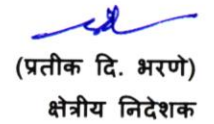 (प्रतीक दि. भरणे)
क्षेत्रीय निदेशक